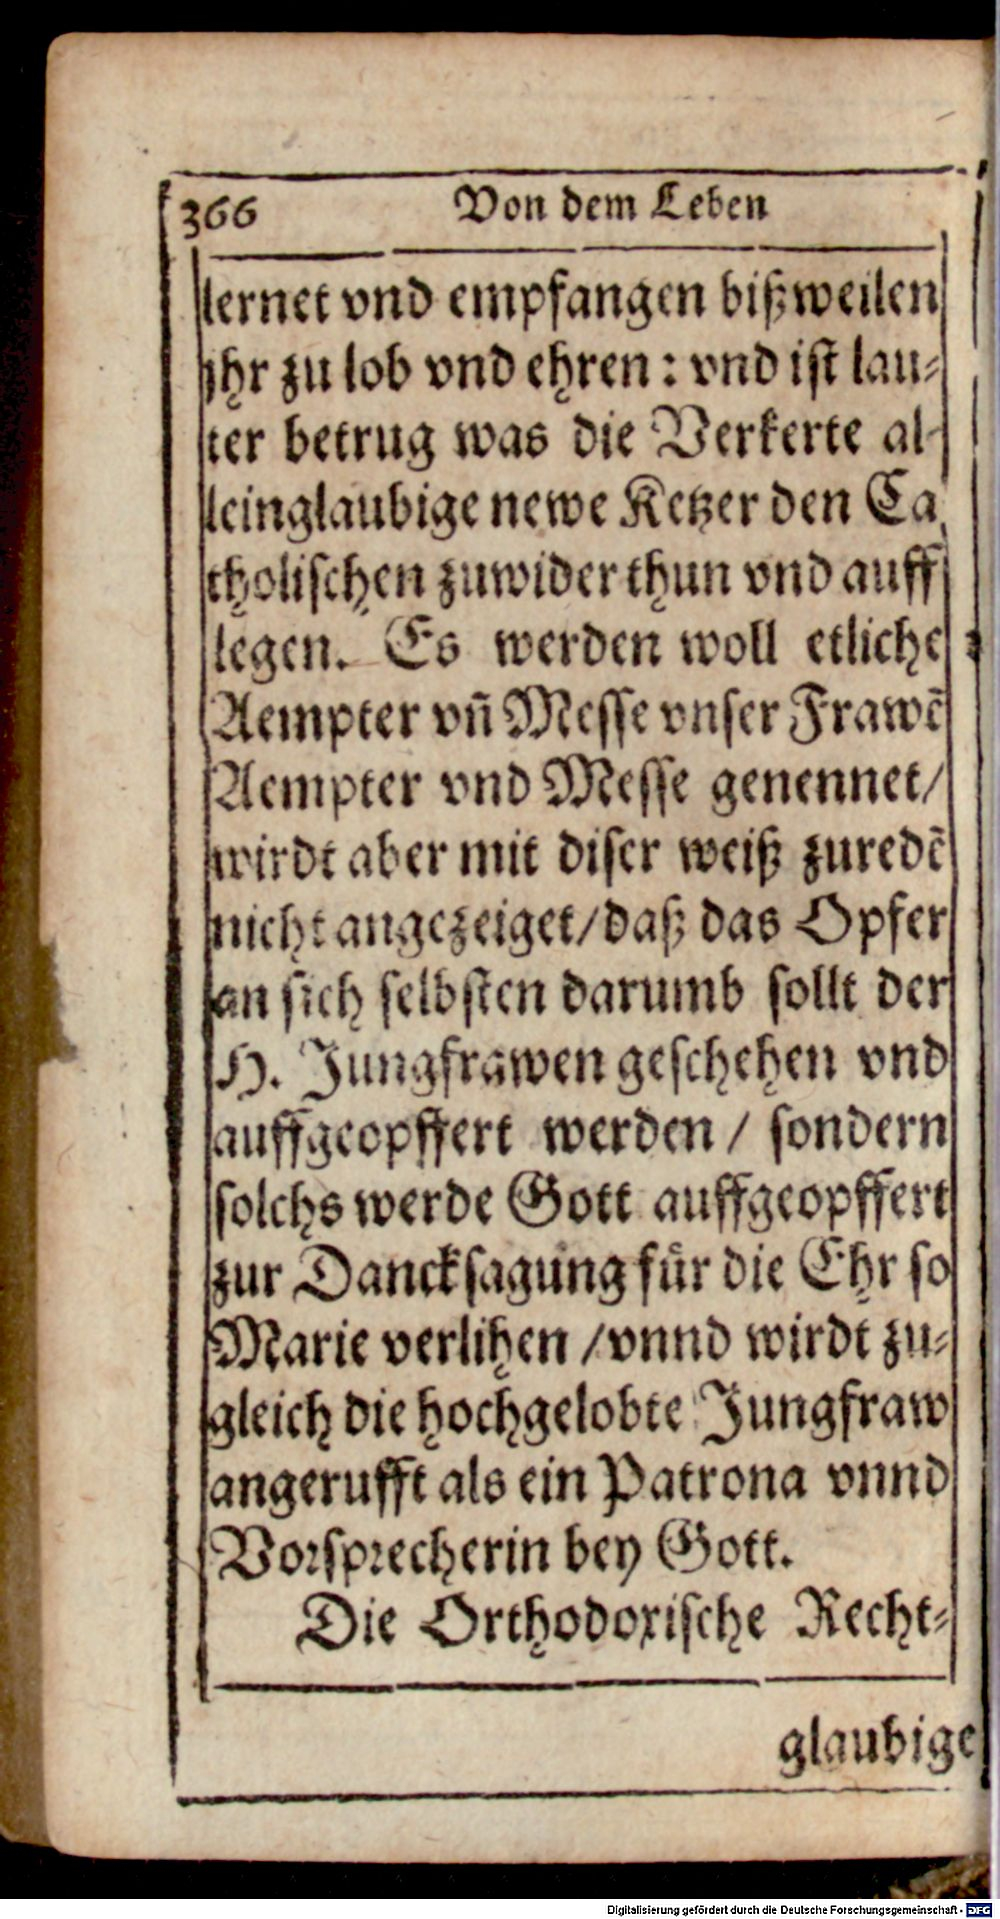 366 Von dem Leben
lernet vnd empfangen bißweilen
jhr zu lob vnd ehren: vnd ist lau⸗
ter betrug was die Verkerte al⸗
leinglaubige newe Ketzer den Ca
tholischen zuwider thun vnd auff
legen. Es werden woll etliche
Aempter vn̄ Messe vnser Frawē
Aempter vnd Messe genennet/
wirdt aber mit diser weiß zuredē
nicht angezeiget/daß das Opfer
an sich selbsten darumb sollt der
H. Jungfrawen geschehen vnd
auffgeopffert werden / sondern
solchs werde Gott auffgeopffert
zur Dancksagung fuͤr die Ehr so
Marie verlihen /vnnd wirdt zu⸗
gleich die hochgelobte Jungfraw
angerufft als ein Patrona vnnd
Vorsprecherin bey Gott.
Die Orthodoxische Recht⸗
glaubige
Digitalisierung gefördert durch die Deutsche Forschungsgemeinschaft - DFG